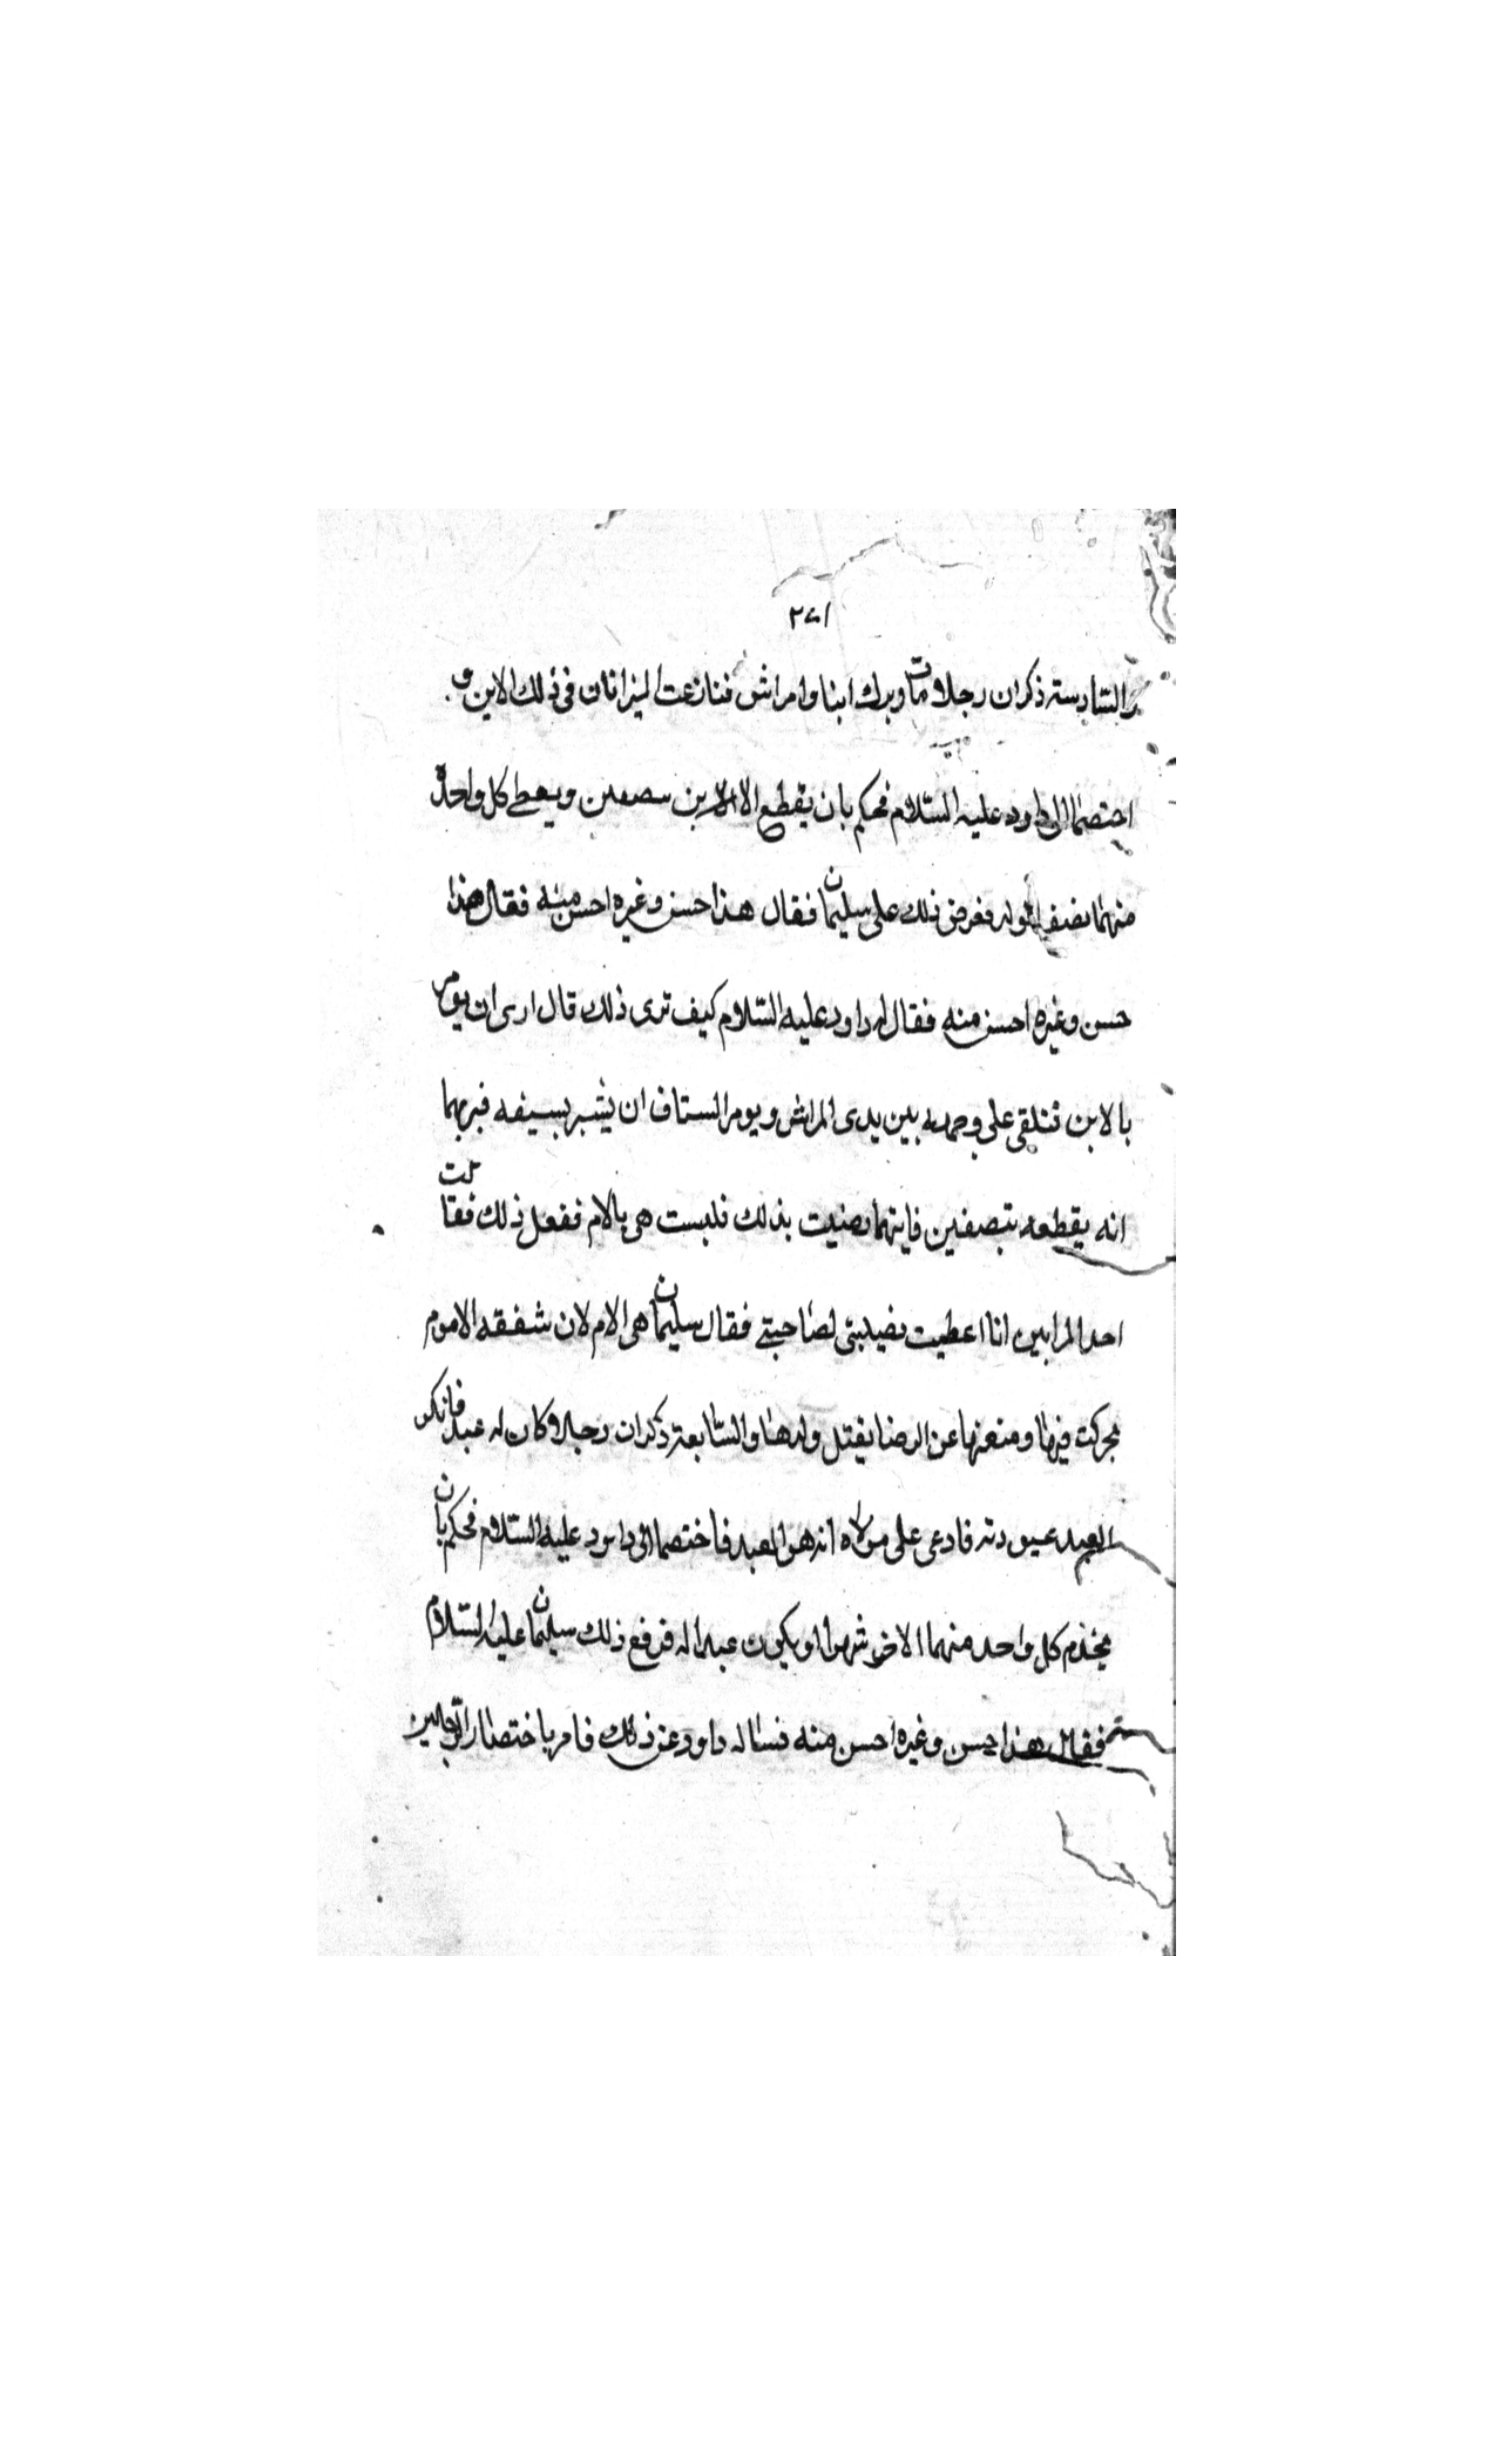 ٢٧١
والسادسة ذكر ان رجلا مات وترك ابنا وامراتين فتنازعت المراتان فى ذلك الابن و
اختصما الى داود عليه السلام فحكم بان يقطع الابن نصفين ويعطى كل واحدة
منهما نصف الولد فعرض ذلك على سليمان فقال هذا حسن وغيره احسن منه فقال هذا
حسن وغيره احسن منه فقال له داود عليه السلام كيف ترى ذلك قال ارى ان يومر
بالابن فتلقى على وجهه بين يدى المراتين ويومر السياف ان يشير بسيفه فيريهما
انه يقطعه بنصفين فايتهما رضيت بذلك فليست هى بالام ففعل ذلك فقالت
احد المراتين انا اعطيت نصيبى لصاحبتى فقال سليمان هى الام لان شفقه الاموم
تحركت فيها ومنعتها عن الرضا بقتل ولدها والسابعة ذكر ان رجلا وكان له عبد فانكر
العبد عبودته فادعى على مولاه انه هو العبد فاختصما الى داود عليه السلام فحكم بان
يخدم كل واحد منهما الاخر شهرا او يكون عبدا له فرفع ذلك سليمان عليه السلام
فقال هذا حسن وغيره احسن منه فساله داود عن ذلك فامر باختصار الرجلين